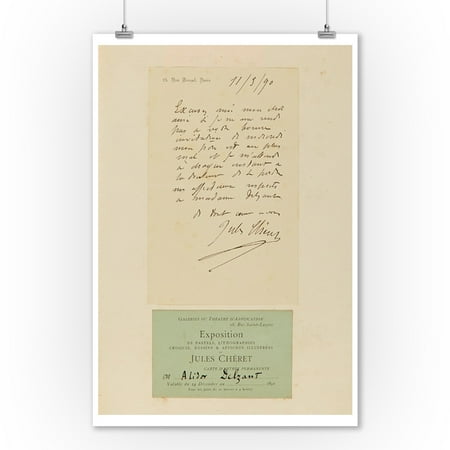 15, Rue Bergère, Paris
11/3/90
Excusez moi mon cher
ami si je ne me rends
pas à votre bonne
invitation de mercredi
mon père est au plus
mal et je m'attends
à chaque instant à
la douleur de le perdre
mes affectueux respects
à madame Delzant
de tout cœur à vous
Jules Chéret
GALERIES DU THÉATRE D'APPLICATION
18, Rue Saint-Lazare
Exposition
DE PASTELS, LITHOGRAPHIES
CROQUIS, DESSINS & AFFICHES ILLUSTRÉES
JULES CHÉRET
CARTE D'ENTRÉE PERMANENTE
M Alidor Delzant
Valable du 24 Décembre au